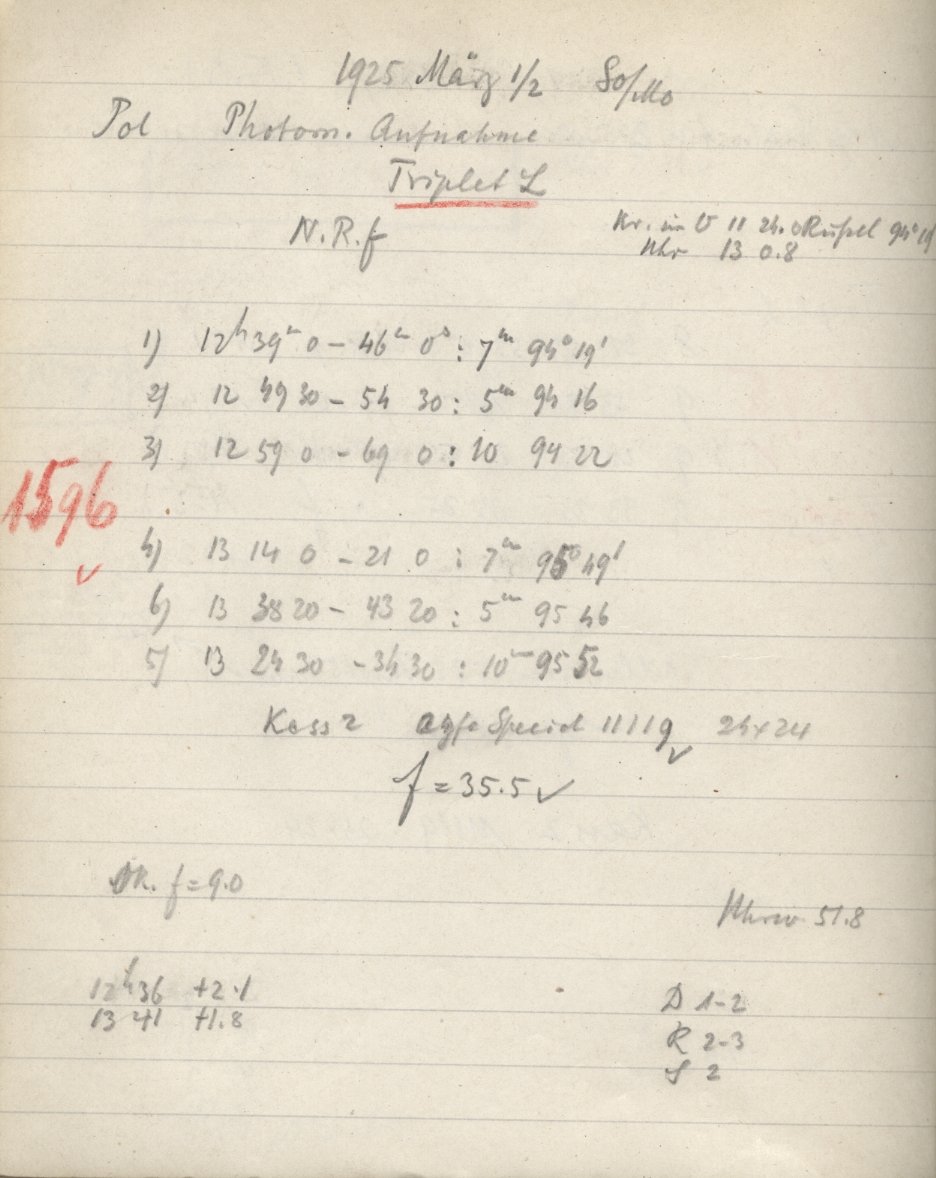 1925 März 1/2 So/Mo
Pol Photom. Aufnahme
Triplet L
N.R.f
Kr. im U 11 24.0 94° 19'
Uhr 13 0.8
1) 12h 39m 0 – 46m 0s : 7m 94° 19'
2) 12 49 30 – 54 30 : 5m 94 16
3) 12 59 0 – 69 0 : 10 94 22
1596
4) 13 14 0 – 21 0 : 7m 95° 49'
6) 13 38 20 – 43 20 : 5m 95 46
5) 13 24 30 – 34 30 : 10m 95 52
Kass 2 Agfa Special 11119 24x24
f = 35.5
f = 9.0
Uhrw 51.8
12h 36 +2.1
13 41 +1.8
D 1-2
R 2-3
S 2